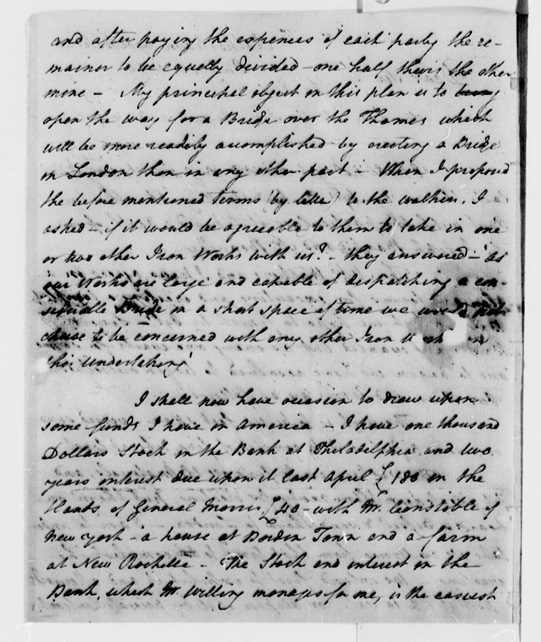 and after paying the expences of each party the re-
mainder to be equally divided one half theirs the other
mine – My principal object in this plan is to
open the way for a Bridge over the Thames which
will be more readily accomplished by erecting a Bridge
in London than in any other part – When I proposed
the before mentioned terms (by letter) to the walkers, I
asked – if it would be agreeable to them to take in one
or two other Iron Works with us? – they answered – 'as
our Works are large and capable of despatching a con-
siderable Bridge in a short space of time we would not
chuse to be concerned with any other Iron Work in
this undertaking'
I shall now have occasion to draw upon
some funds I have in America – I have one thousand
Dollars Stock in the Bank at Philadelphia and two
years interest due upon it last April £180 in the
Hands of General Morris £40 – with Mr. Constable of
New York – a house at Borden Town and a farm
at New Rochelle – The Stock and interest in the
Bank, which Mr Willing manages for me, is the easiest